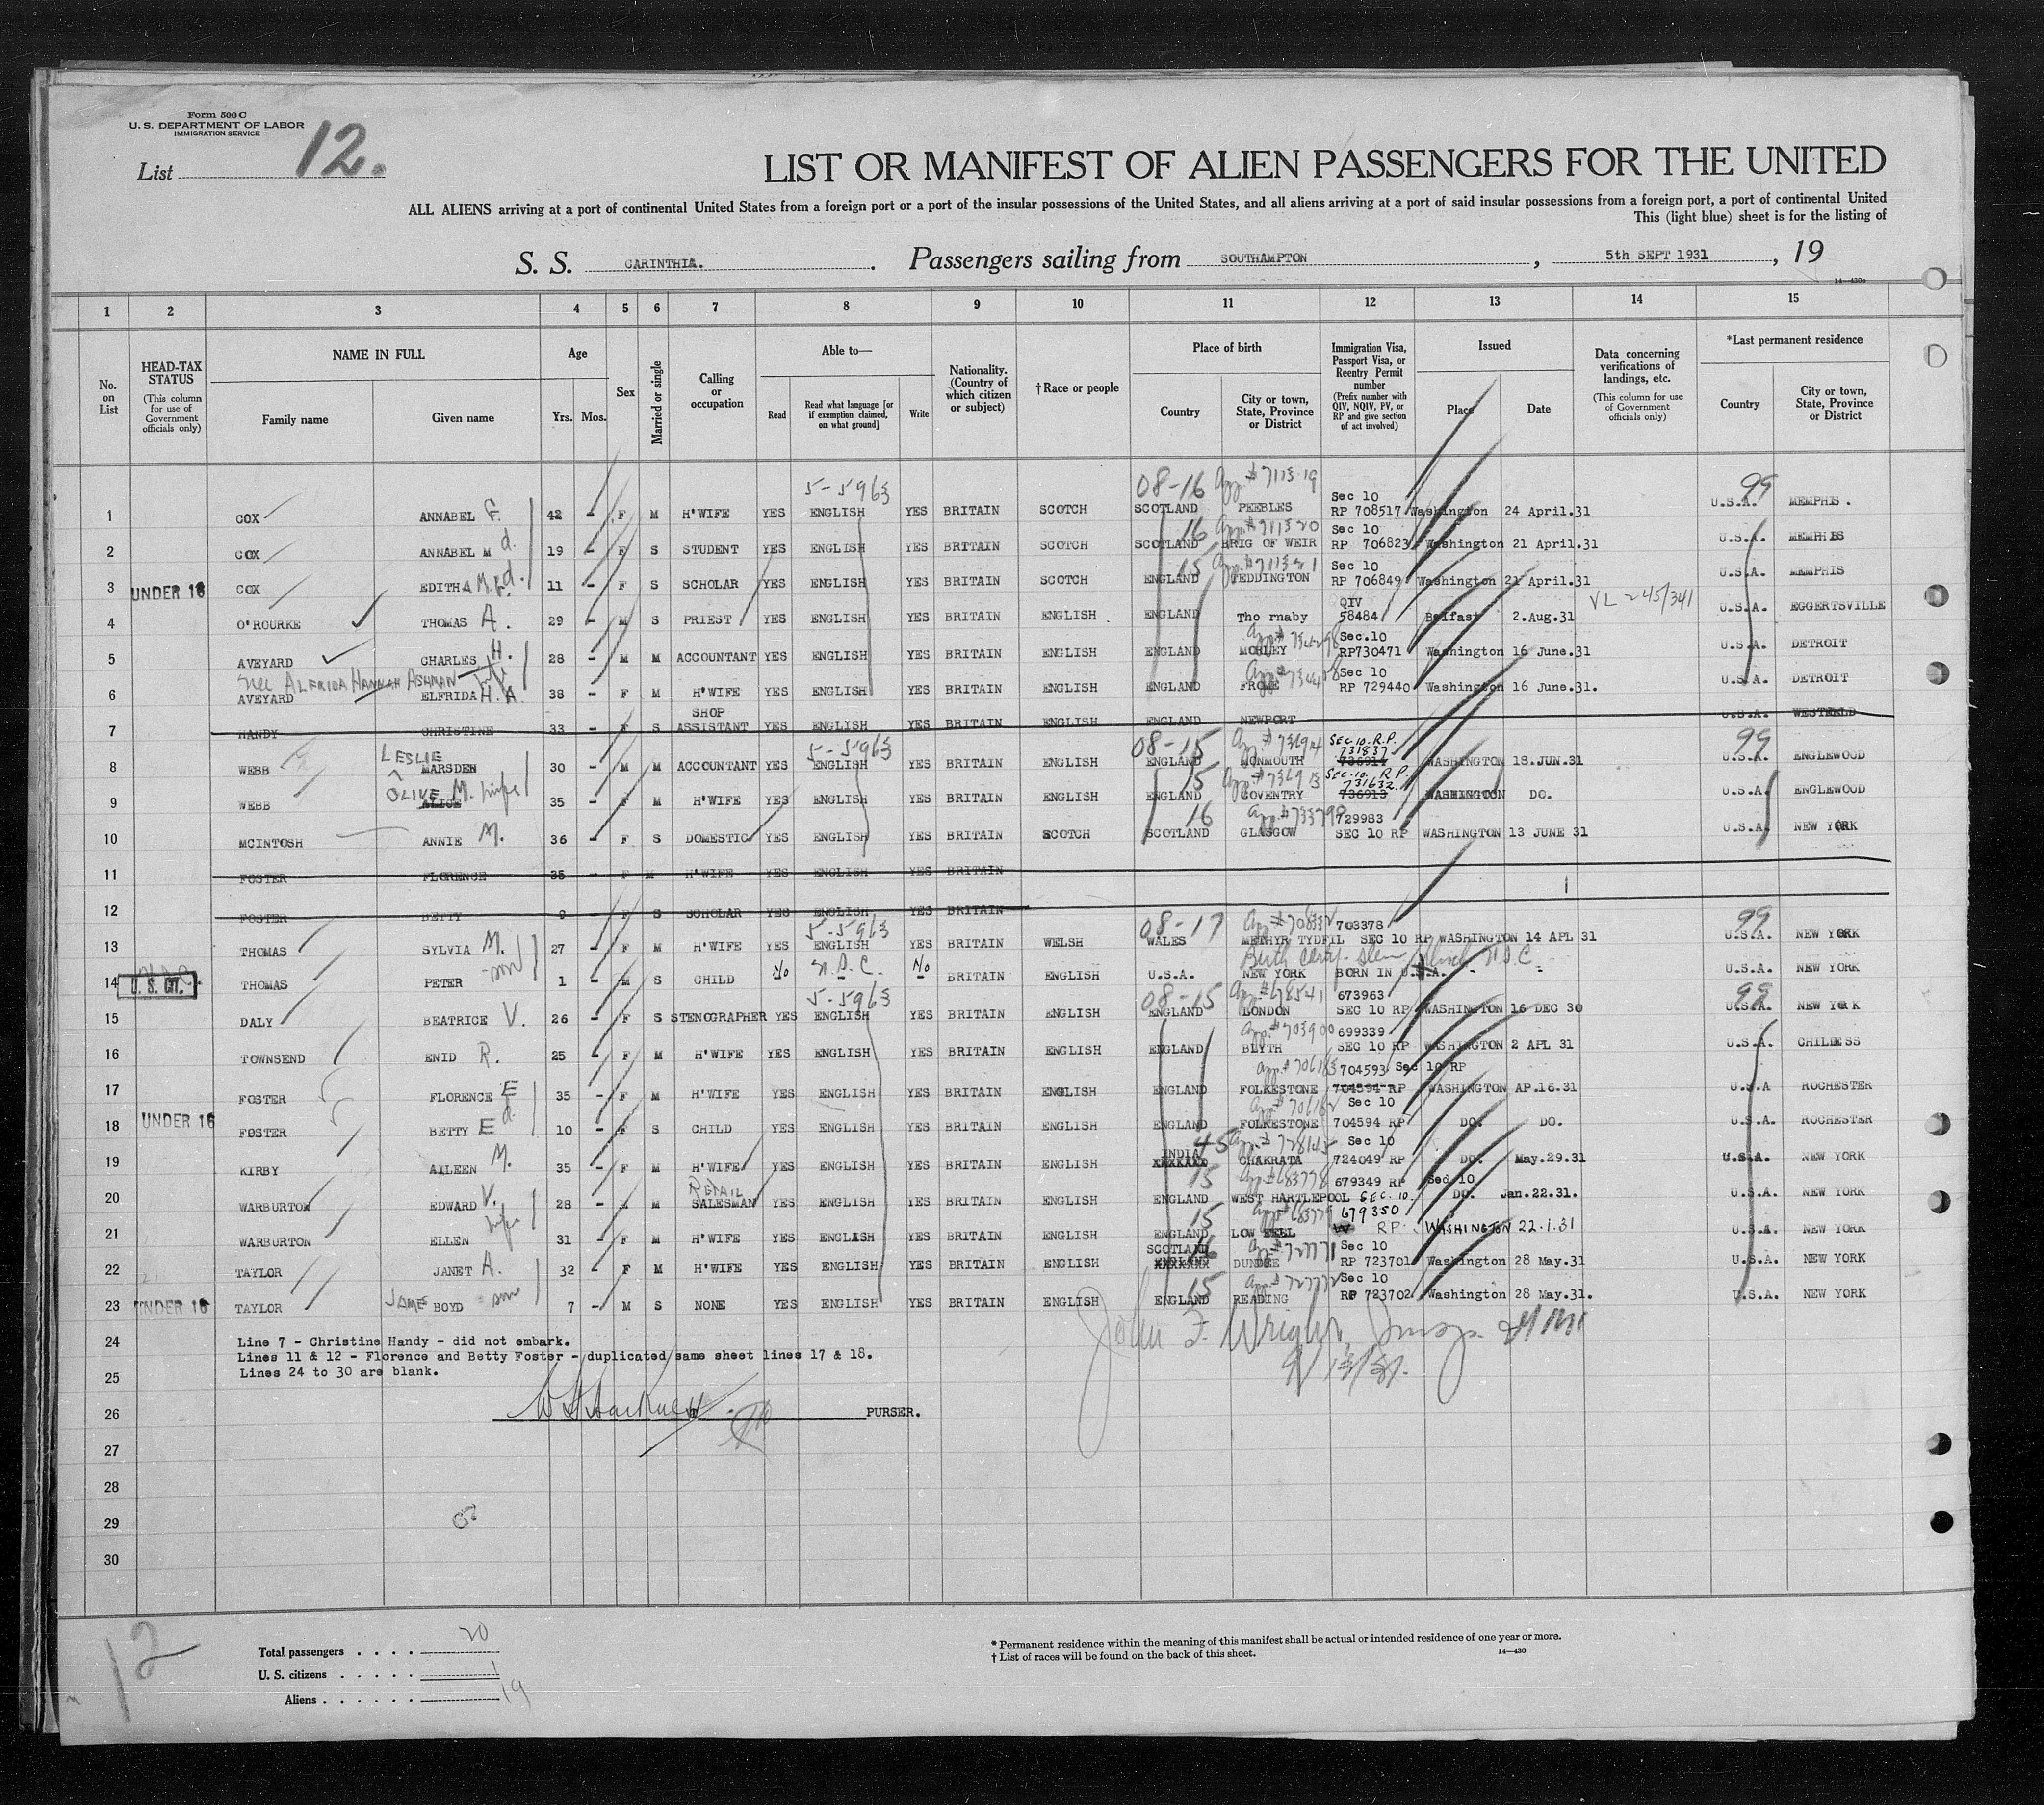 Form 500 C
U. S. DEPARTMENT OF LABOR
IMMIGRATION SERVICE
List 12.
LIST OR MANIFEST OF ALIEN PASSENGERS FOR THE UNITED
ALL ALIENS arriving at a port of continental United States from a foreign port or a port of the insular possessions of the United States, and all aliens arriving at a port of said insular possessions from a foreign port, a port of continental United
This (light blue) sheet is for the listing of
S. S. CARINTHIA. Passengers sailing from SOUTHAMPTON , 5th SEPT 1931 , 19
14—430a
1 2 3 4 5 6 7 8 9 10 11 12 13 14 15
No. on List
HEAD-TAX STATUS (This column for use of Government officials only)
NAME IN FULL Family name Given name
Age Yrs. Mos.
Sex
Married or single
Calling or occupation
Able to— Read Read what language [or if exemption claimed, on what ground] Write
Nationality. (Country of which citizen or subject)
† Race or people
Place of birth Country City or town, State, Province or District
Immigration Visa, Passport Visa, or Reentry Permit number (Prefix number with QIV, NQIV, PV, or RP and give section of act involved)
Issued Place Date
Data concerning verifications of landings, etc. (This column for use of Government officials only)
*Last permanent residence Country City or town, State, Province or District
5-5963 08-16 App# 711319 Sec 10 99
1 COX ANNABEL F. 42 - F M H'WIFE YES ENGLISH YES BRITAIN SCOTCH SCOTLAND PEEBLES RP 708517 Washington 24 April.31 U.S.A. MEMPHIS .
16 App# 711320 Sec 10
2 COX ANNABEL M d. 19 - F S STUDENT YES ENGLISH YES BRITAIN SCOTCH SCOTLAND BRIG OF WEIR RP 706823 Washington 21 April.31 U.S.A. MEMPHIS
15 App# 711321 Sec 10
3 UNDER 16 COX EDITHA M. d. 11 - F S SCHOLAR YES ENGLISH YES BRITAIN SCOTCH ENGLAND TEDDINGTON RP 706849 Washington 21 April.31 U.S.A. MEMPHIS
QIV VL 245/341
4 O'ROURKE THOMAS A. 29 - M S PRIEST YES ENGLISH YES BRITAIN ENGLISH ENGLAND Tho rnaby 58484 Belfast 2.Aug.31 U.S.A. EGGERTSVILLE
Sec.10
5 AVEYARD CHARLES H. 28 - M M ACCOUNTANT YES ENGLISH YES BRITAIN ENGLISH ENGLAND MORLEY RP730471 Washington 16 June.31 U.S.A. DETROIT
nee ALFRIDA HANNAH ASHMAN wife Sec 10
6 AVEYARD ELFRIDA H. A. 38 - F M H'WIFE YES ENGLISH YES BRITAIN ENGLISH ENGLAND FROME RP 729440 Washington 16 June.31. U.S.A. DETROIT
7 HANDY CHRISTINE 33 - F S SHOP ASSISTANT YES ENGLISH YES BRITAIN ENGLISH ENGLAND NEWPORT U.S.A. WESTFIELD
5-5963 08-15 SEC.10.R.P. 731837 99
8 WEBB LESLIE MARSDEN 30 - M M ACCOUNTANT YES ENGLISH YES BRITAIN ENGLISH ENGLAND MONMOUTH 736914 WASHINGTON 18.JUN.31 U.S.A. ENGLEWOOD
15 SEC.10. R P. 731632
9 WEBB OLIVE M. wife ALICE 35 - F M H'WIFE YES ENGLISH YES BRITAIN ENGLISH ENGLAND COVENTRY 736913 WASHINGTON DO. U.S.A. ENGLEWOOD
16 729983
10 MCINTOSH ANNIE M. 36 - F S DOMESTIC YES ENGLISH YES BRITAIN SCOTCH SCOTLAND GLASGOW SEC 10 RP WASHINGTON 13 JUNE 31 U.S.A. NEW YORK
11 FOSTER FLORENCE 35 - F M H'WIFE YES ENGLISH YES BRITAIN
12 FOSTER BETTY 9 - F S SCHOLAR YES ENGLISH YES BRITAIN
5-5963 08-17 703378 99
13 THOMAS SYLVIA M. 27 - F M H'WIFE YES ENGLISH YES BRITAIN WELSH WALES METHYR TYDFIL SEC 10 RP WASHINGTON 14 APL 31 U.S.A. NEW YORK
Birth Certf.
14 U. S. CIT. THOMAS PETER son 1 - M S CHILD No No BRITAIN ENGLISH U.S.A. NEW YORK BORN IN U.S.A. U.S.A. NEW YORK
5-5963 08-15 App# 678541 673963 99
15 DALY BEATRICE V. 26 - F S STENOGRAPHER YES ENGLISH YES BRITAIN ENGLISH ENGLAND LONDON SEC 10 RP WASHINGTON 16 DEC 30 U.S.A. NEW YORK
App# 703900 699339
16 TOWNSEND ENID R. 25 - F M H'WIFE YES ENGLISH YES BRITAIN ENGLISH ENGLAND BLYTH SEC 10 RP WASHINGTON 2 APL 31 U.S.A. CHILDESS
704593 Sec 10 RP
17 FOSTER FLORENCE E 35 - F M H'WIFE YES ENGLISH YES BRITAIN ENGLISH ENGLAND FOLKESTONE 704594 RP WASHINGTON AP.16.31 U.S.A ROCHESTER
Sec 10
18 UNDER 16 FOSTER BETTY E d. 10 - F S CHILD YES ENGLISH YES BRITAIN ENGLISH ENGLAND FOLKESTONE 704594 RP DO. DO. U.S.A. ROCHESTER
INDIA 45 Sec 10
19 KIRBY AILEEN M. 35 - F M H'WIFE YES ENGLISH YES BRITAIN ENGLISH XXXXXXX CHAKRATA 724049 RP DO. May.29.31 U.S.A. NEW YORK
RETAIL 15 App# 683778 679349 RP Sec 10
20 WARBURTON EDWARD V. 28 - M SALESMAN YES ENGLISH YES BRITAIN ENGLISH ENGLAND WEST HARTLEPOOL SEC. 10. DO. Jan.22.31. U.S.A. NEW YORK
15 App# 683779 679350
21 WARBURTON ELLEN wife 31 - F M H'WIFE YES ENGLISH YES BRITAIN ENGLISH ENGLAND LOW FELL RP. WASHINGTON 22.1.31 U.S.A. NEW YORK
SCOTLAND 16 App# 727771 Sec 10
22 TAYLOR JANET A. 32 - F M H'WIFE YES ENGLISH YES BRITAIN ENGLISH XXXXXXX DUNDEE RP 723701 Washington 28 May.31 U.S.A. NEW YORK
15 App# 727772 Sec 10
23 UNDER 16 TAYLOR JAME BOYD son 7 - M S NONE YES ENGLISH YES BRITAIN ENGLISH ENGLAND READING RP 723702 Washington 28 May.31. U.S.A. NEW YORK
John F. Wright
24 Line 7 - Christine Handy - did not embark.
Lines 11 & 12 - Florence and Betty Foster - duplicated same sheet lines 17 & 18.
25 Lines 24 to 30 are blank.
26 PURSER.
27
28
29
30
12
Total passengers . . . . 20
U. S. citizens . . . . . 1
Aliens . . . . . . 19
* Permanent residence within the meaning of this manifest shall be actual or intended residence of one year or more.
† List of races will be found on the back of this sheet.
14—430